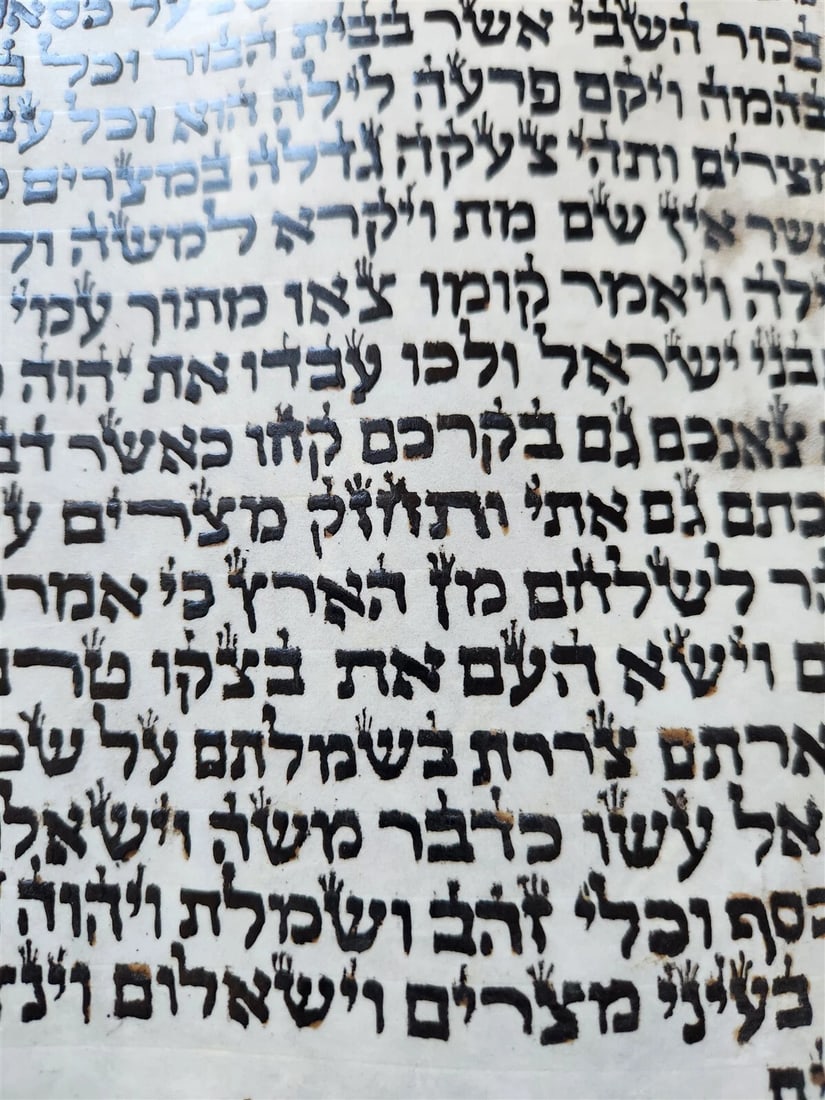 בכור השבי אשר בבית הבור וכל
בהמה ויקם פרעה לילה הוא וכל
מצרים ותהי צעקה גדלה במצרים
אשר אין שם מת ויקרא למשה
ילה ויאמר קומו צאו מתוך עמי
בני ישראל ולכו עבדו את יהוה
צאנכם גם בקרכם קחו כאשר דב
כתם גם אתי ותחזק מצרים ע
הר לשלחם מן הארץ כי אמרו
ם וישא העם את בצקו טרם
ארתם צררת בשמלתם על שכ
אל עשו כדבר משה וישאלו
כסף וכלי זהב ושמלת ויהוה
בעיני מצרים וישאלום וינצ
ים